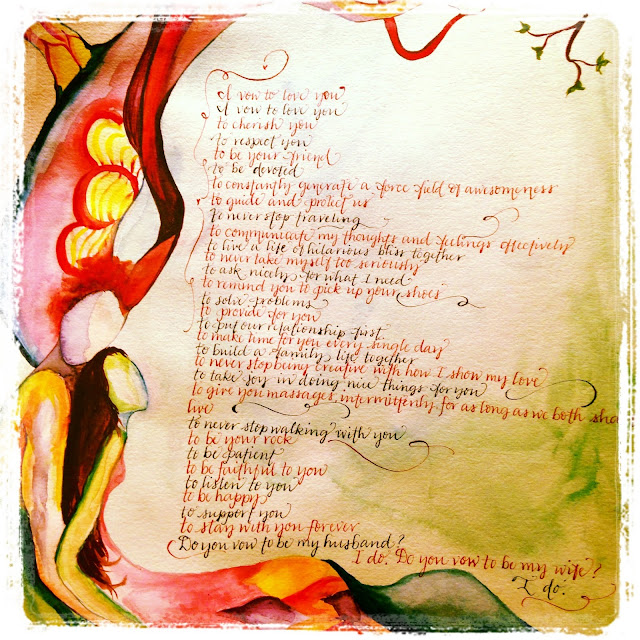 I vow to love you.
I vow to love you
to cherish you
to respect you
to be your friend
to be devoted
to constantly generate a force field of awesomeness
to guide and protect us
to never stop traveling
to communicate my thoughts and feelings effectively
to live a life of hilarious bliss together
to never take myself too seriously
to ask nicely for what I need
to remind you to pick up your shoes
to solve problems
to provide for you
to put our relationship first
to make time for you every single day
to build a family life together
to never stop being creative with how I show my love
to take joy in doing nice things for you
to give you massages, intermittently, for as long as we both sha
live
to never stop walking with you
to be your rock
to be patient
to be faithful to you
to listen to you
to be happy
to support you
to stay with you forever
Do you vow to be my husband?
I do. Do you vow to be my wife?
I do.